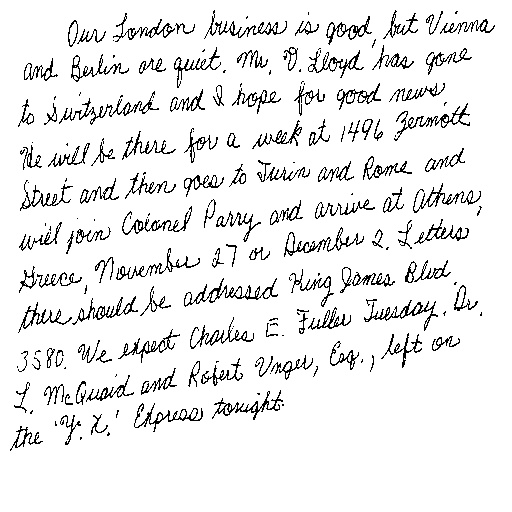 Our London business is good, but Vienna
and Berlin are quiet. Mr. D. Lloyd has gone
to Switzerland and I hope for good news.
He will be there for a week at 1496 Zermott
Street and then goes to Turin and Rome and
will join Colonel Parry and arrive at Athens,
Greece, November 27 or December 2. Letters
there should be addressed King James Blvd.
3580. We expect Charles E. Fuller Tuesday. Dr.
L. McQuaid and Robert Unger, Esq., left on
the 'Y. X.' Express tonight.